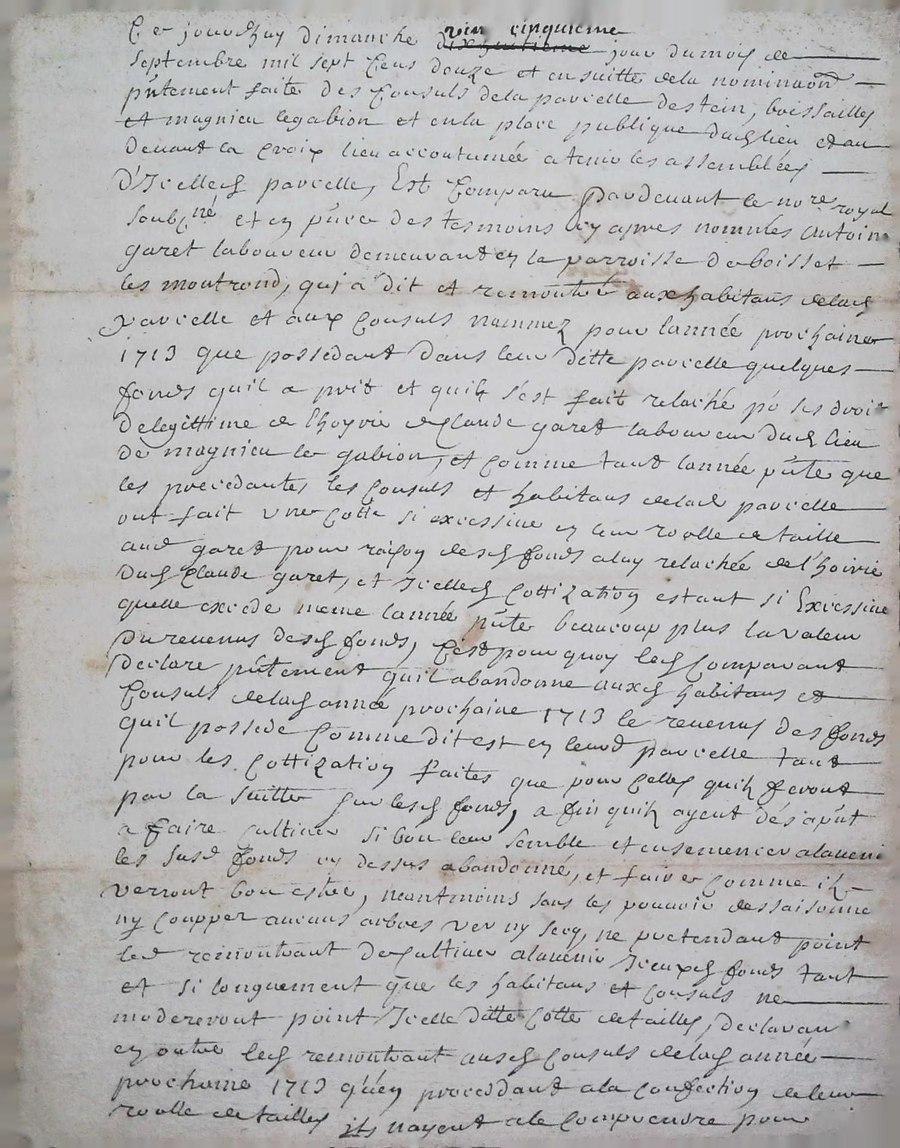 Ce jourdhuy dimanche vin cinquieme dixhuitieme jour du mois de
septembre mil sept cens douze et en suitte de la nominaon
pntement faite des consuls de la parcelle destein, boissailles
et magnieu legabion et en la place publique dud lieu et au
devant la croix lieu accoutumée a tenir les assemblées
d'Icelled parcelle, Est comparu pardevant le nore royal
soubzné et en pnce des tesmoins cy apres nommés antoine
garet laboureur demeurant en la parroisse de boisset
les montrond, qui a dit et remontré auxd habitans de lad
parcelle et aux consuls nommez pour lannée prochaine
1713 que possedant dans leur ditte parcelle quelques
fonds quil a prit et quil s'est fait relaché pr ses droit
de legittime de lhoyrie de claude garet laboureur dud lieu
de magnieu le gabion, et comme tant lannée pnte que
les precedante, les consuls et habitans de lad parcelle
ont fait une cotte si excessive en leur rolle de taille
aud garet pour raison desd fonds a luy relachée de l'hoirie
dud claude garet, et Icelled cottization estant si Excessive
quelle excede meme lannée pnte beaucoup plus la valeur
du revenus desd fonds, c'est pourquoy led comparant
declare pntement quil abandonne auxd habitans et
consuls de lad année prochaine 1713 le revenus des fonds
quil possede comme dit est en leurd parcelle tant
pour les cottization faites que pour celles quilz feront
par la suitte sur lesd fonds, a fin quilz ayent dés a pnt
a faire cultiver si bon leur semble et ensemencer alavenir
les susd fonds cy dessus abandonné, et faire comme ilz
verront bon estre, neantmoins sans les pouvoir dessaisonne
ny coupper aucuns arbres ver ny secq, ne pretendant point
led remontrant de cultiver alavenir Iceuxd fonds tant
et si longuement que les habitans et consuls ne
modereront point Icelle ditte cotte de tailles, declaran
en outre led remontrant ausd consuls de lad année
prochaine 1713 qu'en procedant a la confection de leur
rolle de tailles ils nayent a le comprendre pour